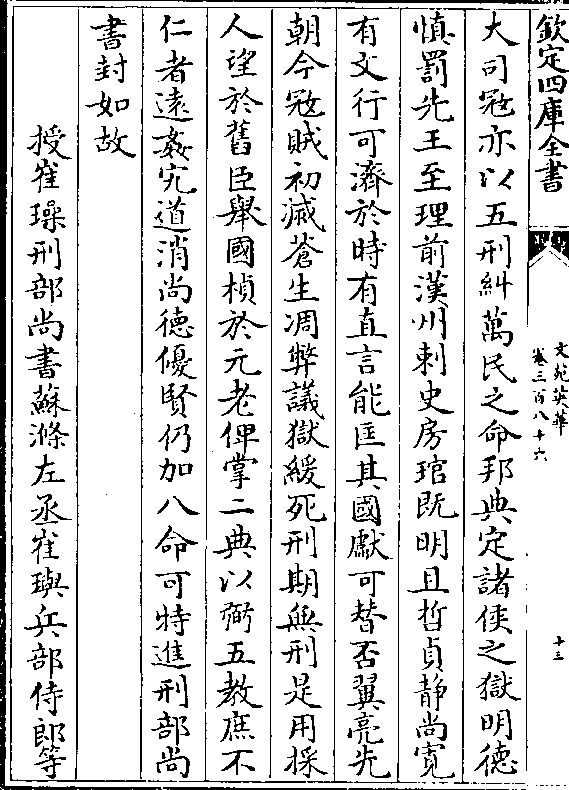 欽定四庫全書
文苑英華
卷三百八十六
十三
大司寇亦以五刑糾萬民之命邦典定諸侯之獄明德
慎罰先王至理前漢州刺史房琯既明且哲貞静尚寛
有文行可濟於時有直言能匡其國獻可替否翼亮先
朝今寇賊初滅蒼生凋弊議獄緩死刑期無刑是用採
人望於舊臣舉國楨於元老俾掌二典以弼五教庶不
仁者遠姦宄道消尚德優賢仍加八命可特進刑部尚
書封如故
授崔璪刑部尚書蘇滌左丞崔璵兵部侍郎等